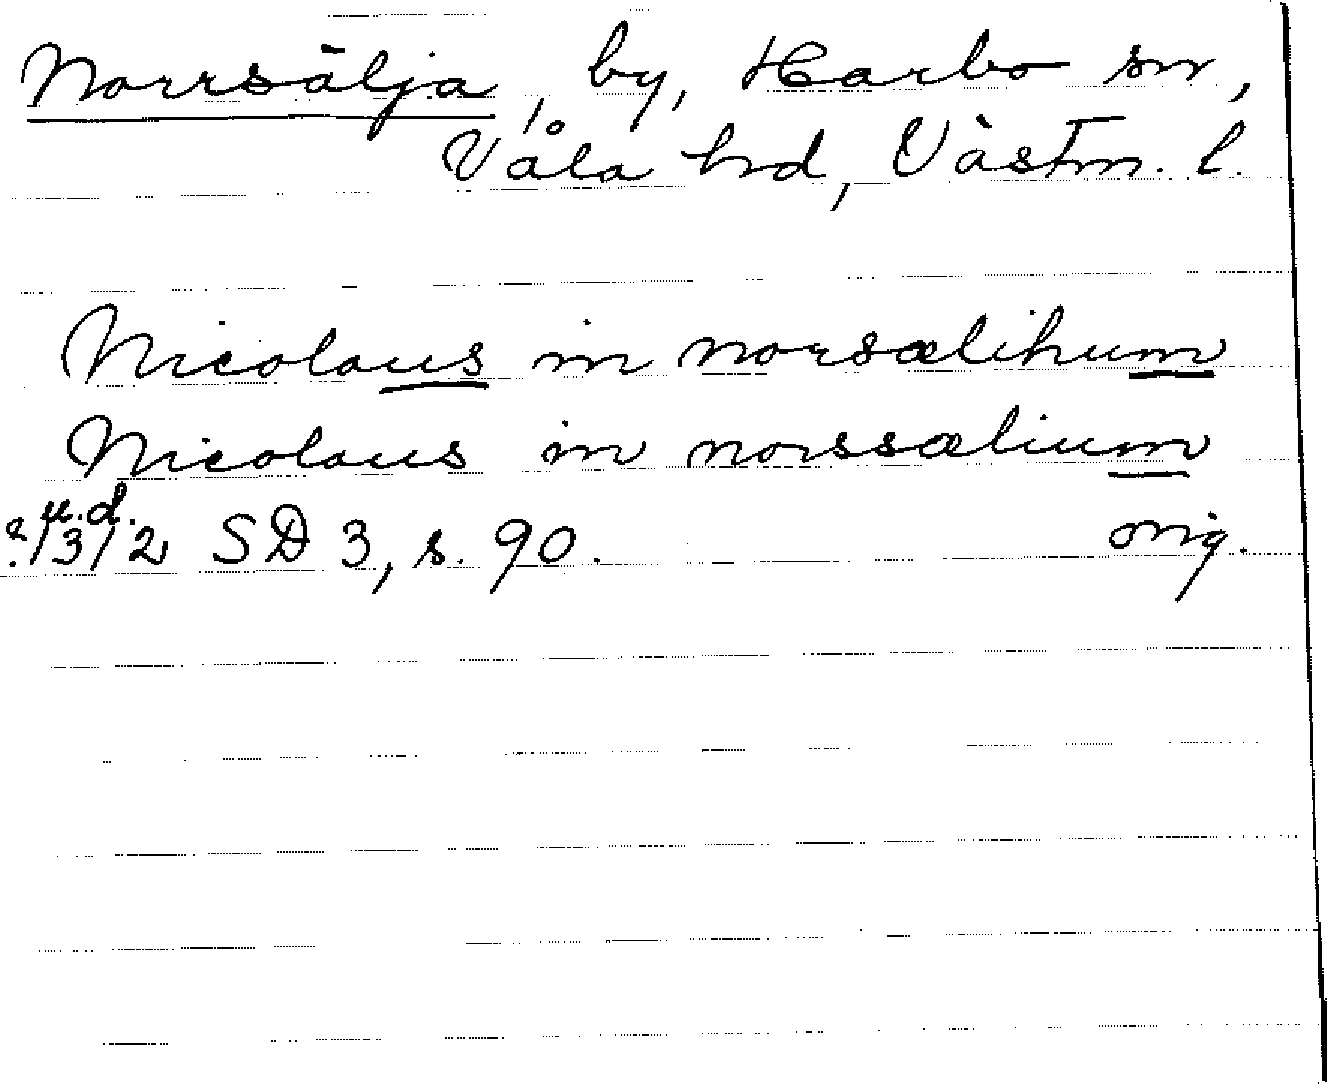 Norrsälja, by, Harbo sn,
Våla hd, Västm. l.
Nicolaus in norsælihum
Nicolaus in norssælium
u.d.
?/3 12 SD 3, s. 90. orig.